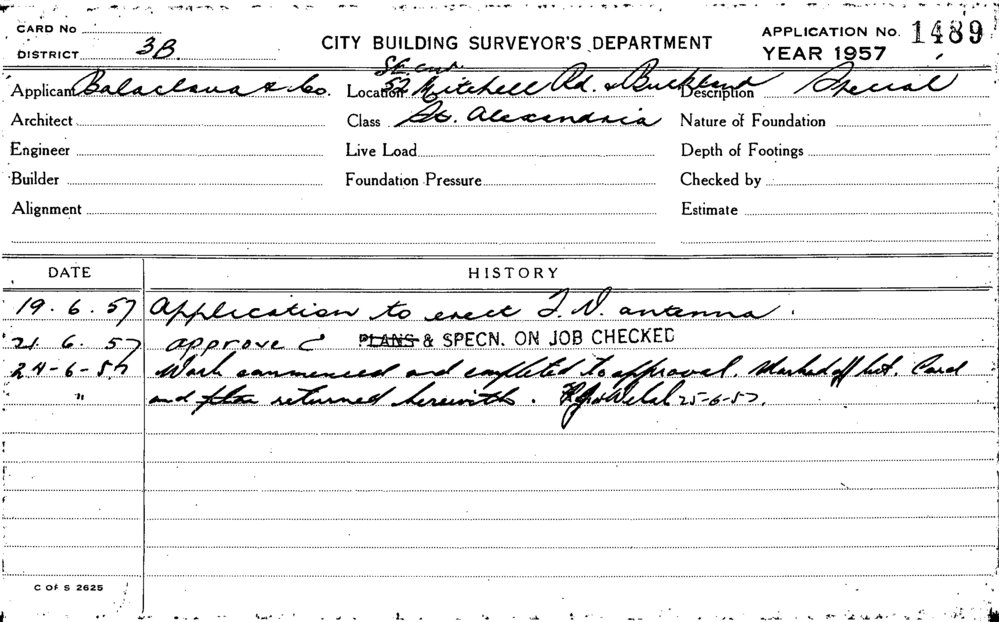 CARD No
DISTRICT 3B.
CITY BUILDING SURVEYOR'S DEPARTMENT
APPLICATION No. 1489
YEAR 1957
Applicant Balaclava & Co.
St. cnr.
Location 52 Mitchell Rd. & Buckland
Description Special
Architect
Class St. Alexandria
Nature of Foundation
Engineer
Live Load
Depth of Footings
Builder
Foundation Pressure
Checked by
Alignment
Estimate
DATE HISTORY
19. 6. 57 Application to erect T.V. antenna.
21. 6. 57 approved PLANS & SPECN. ON JOB CHECKED
24-6-57 Work commenced and completed to approval. Marked off list. Card
" and plan returned herewith. 25-6-57.
C OF S 2625